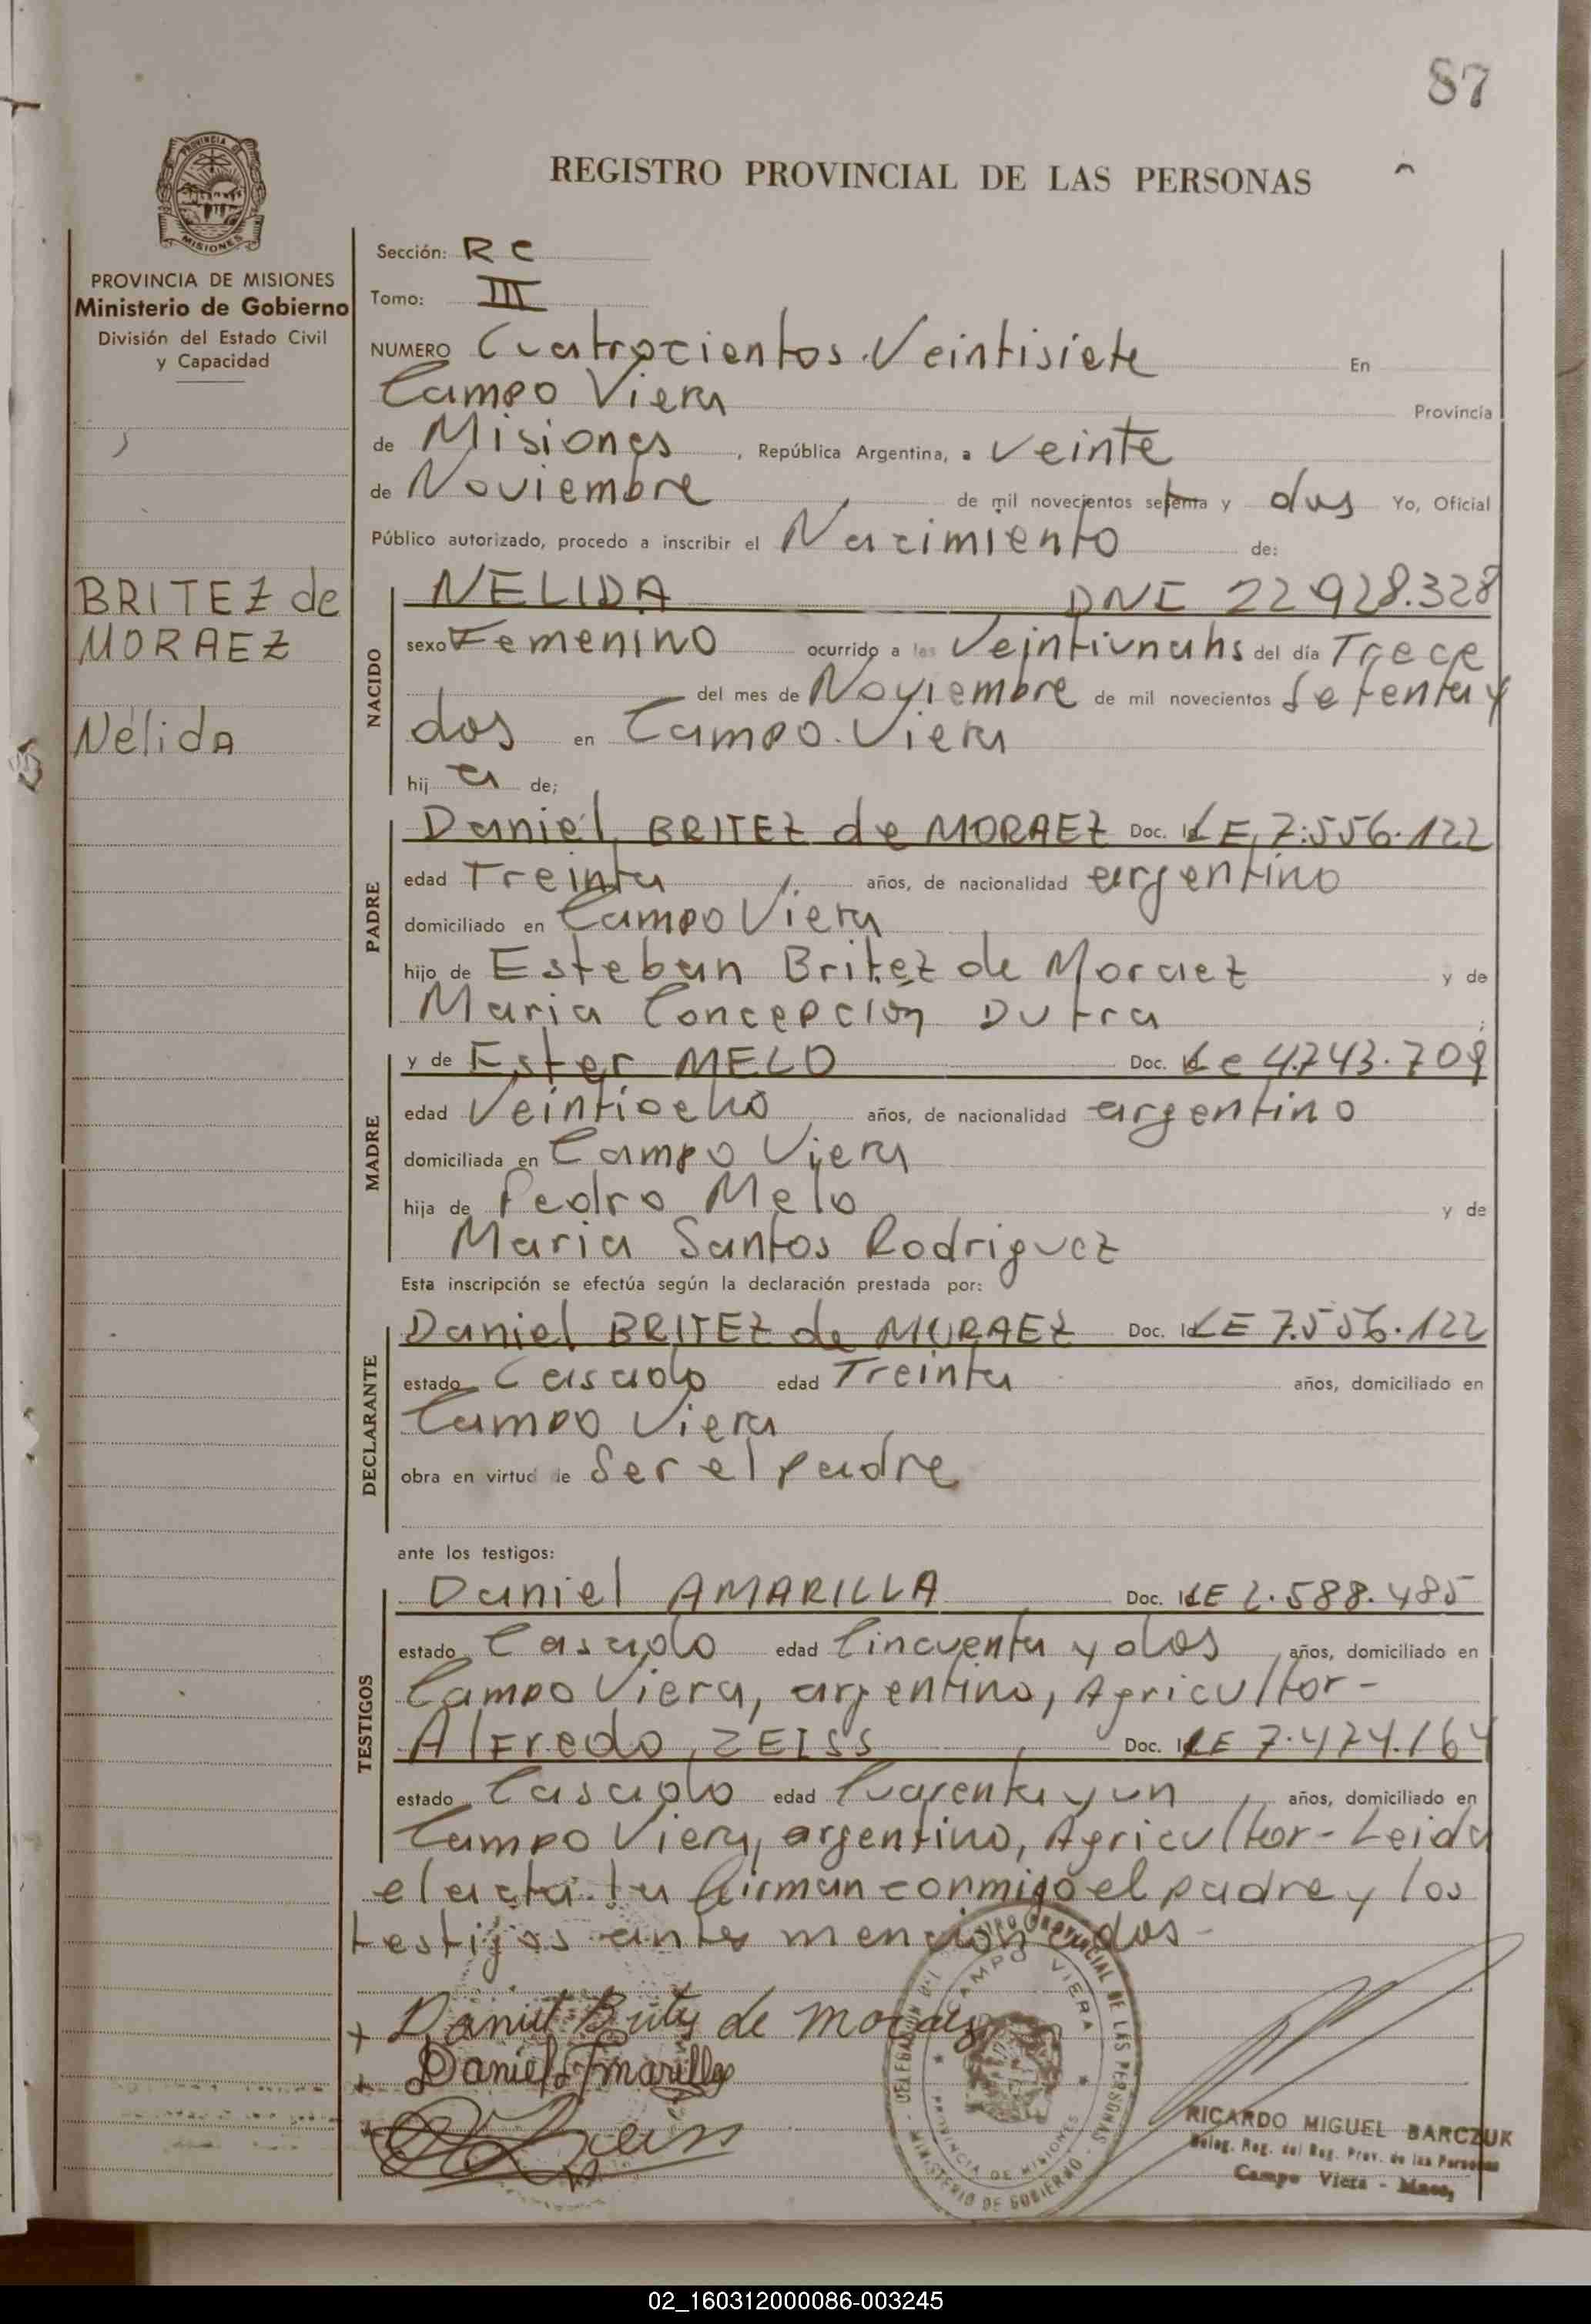 87
REGISTRO PROVINCIAL DE LAS PERSONAS
PROVINCIA DE MISIONES
Ministerio de Gobierno
División del Estado Civil
y Capacidad
BRITEZ de
MORAEZ
Nélida
Sección: RC
Tomo: III
NUMERO Cuatrocientos Veintisiete En
Campo Viera Provincia
de Misiones, República Argentina, a Veinte
de Noviembre de mil novecientos setenta y dos Yo, Oficial
Público autorizado, procedo a inscribir el Nacimiento de:
NACIDO
NELIDA DNI 22.928.328
sexo Femenino ocurrido a las Veintiunahs del día Trece
del mes de Noviembre de mil novecientos Setenta y
dos en Campo Viera
hij a de;
PADRE
Daniel BRITEZ de MORAEZ Doc. Id LE 7.556.122
edad Treinta años, de nacionalidad argentino
domiciliado en Campo Viera
hijo de Esteban Britez de Moraez y de
Maria Concepción Dutra
MADRE
y de Ester MELO Doc. Id Le 4.743.709
edad Veintiocho años, de nacionalidad argentino
domiciliada en Campo Viera
hija de Pedro Melo y de
Maria Santos Rodriguez
Esta inscripción se efectúa según la declaración prestada por:
DECLARANTE
Daniel BRITEZ de MORAEZ Doc. Id LE 7.556.122
estado Casado edad Treinta años, domiciliado en
Campo Viera
obra en virtud de Ser el padre
ante los testigos:
TESTIGOS
Daniel AMARILLA Doc. Id LE 2.588.485
estado Casado edad Cincuenta y dos años, domiciliado en
Campo Viera, argentino, Agricultor-
Alfredo ZEISS Doc. Id LE 7.474.164
estado Casado edad Cuarenta y un años, domiciliado en
Campo Viera, argentino, Agricultor- Leida
el acta la firman conmigo el padre y los
testigos antes mencionados-
Daniel Britez de moraez
Daniel Amarilla
DELEGACION DEL REGISTRO PROVINCIAL DE LAS PERSONAS
CAMPO VIERA
PROVINCIA DE MISIONES
MINISTERIO DE GOBIERNO
RICARDO MIGUEL BARCZUK
Deleg. Reg. del Reg. Prov. de las Personas
Campo Viera - Mnes,
02_160312000086-003245